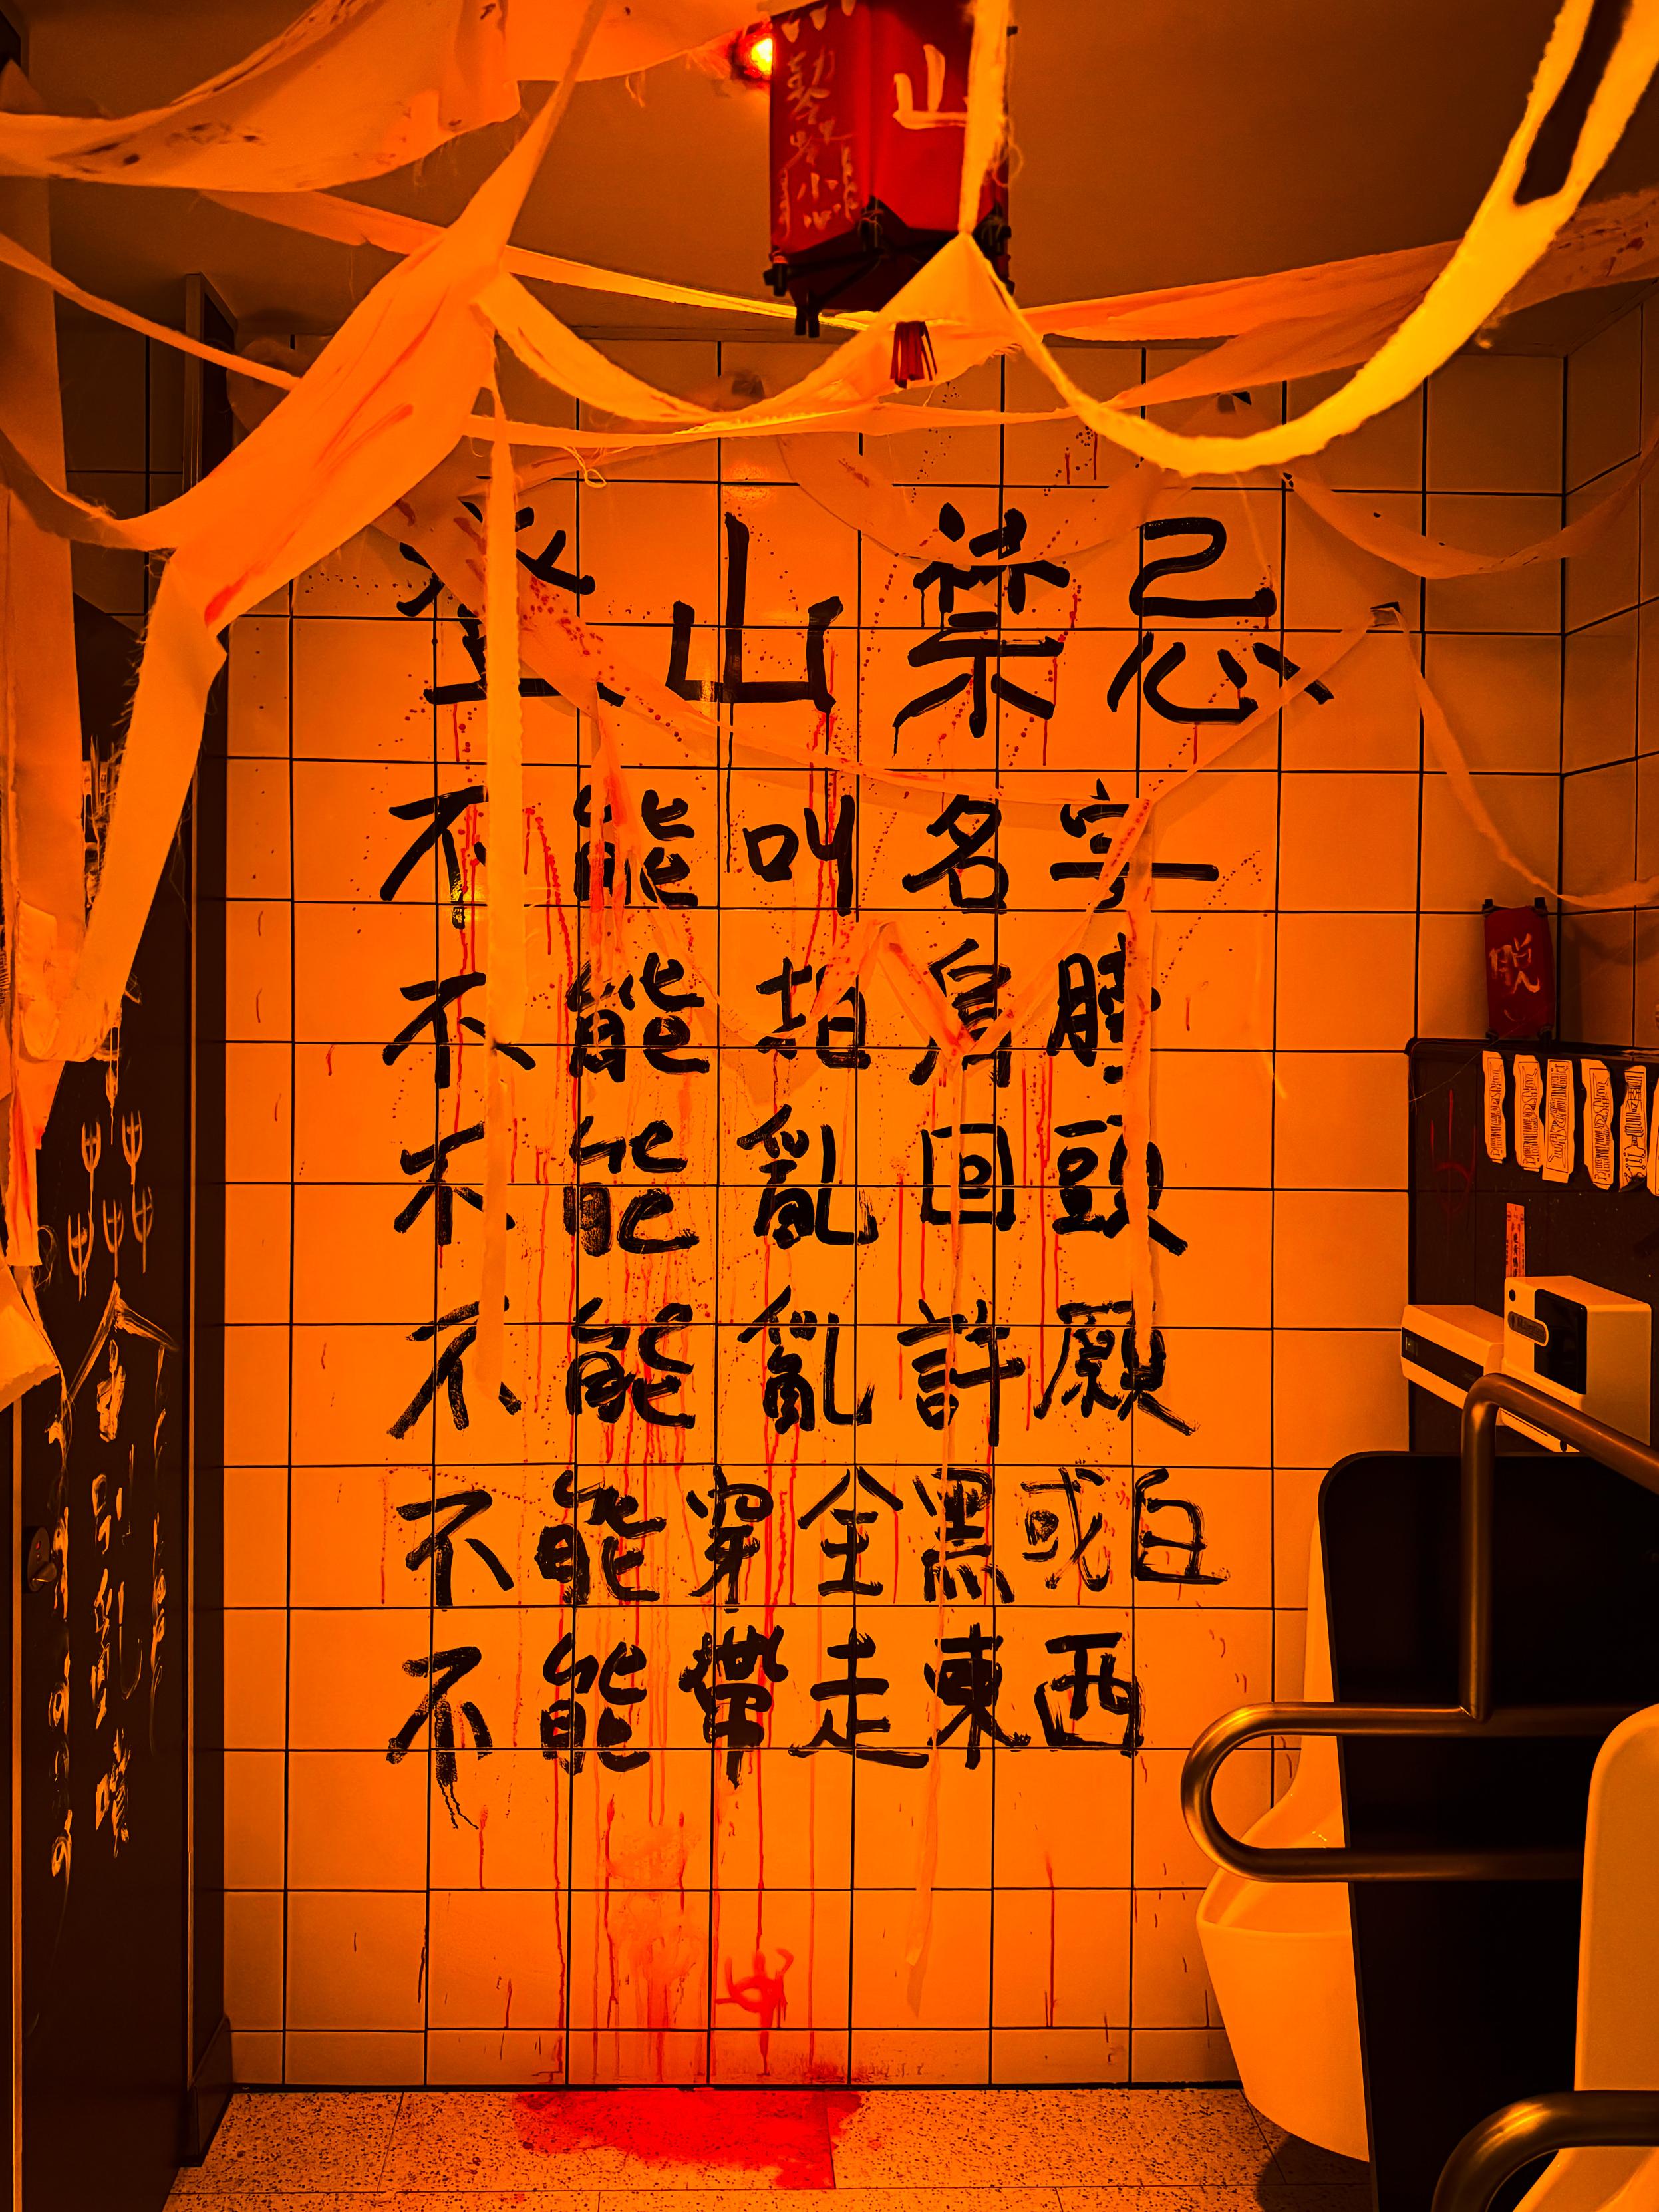 山
小心
登山禁忌
不能叫名字
不能拍肩膀
不能亂回頭
不能亂許願
不能穿全黑或白
不能帶走東西